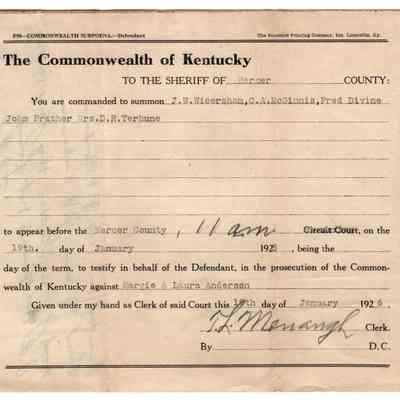 P99—COMMONWEALTH SUBPOENA.—Defendant
The Standard Printing Company, Inc. Louisville, Ky.
The Commonwealth of Kentucky
TO THE SHERIFF OF Mercer COUNTY:
You are commanded to summon J.W.Wicersham,C.A.McGinnis,Fred Divine
John Prather Mrs.D.R.Terhune
to appear before the Mercer County, 11 am Circuit Court, on the
19th. day of January 192, being the
day of the term, to testify in behalf of the Defendant, in the prosecution of the Common-
wealth of Kentucky against Margie & Laura Anderson
Given under my hand as Clerk of said Court this day of January 1926.
T L Menaugh Clerk.
By D.C.